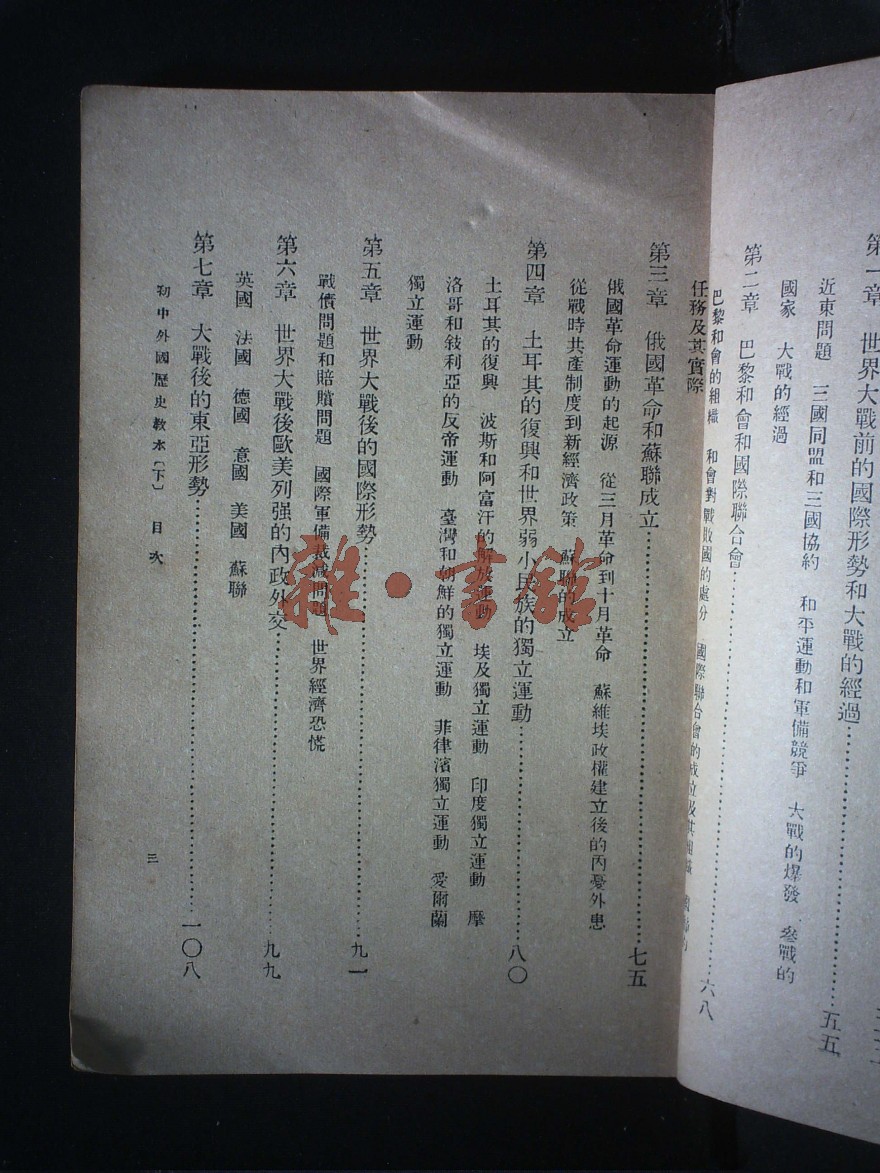 第一章 世界大戰前的國際形勢和大戰的經過……五五
近東問題 三國同盟和三國協約 和平運動和軍備競爭 大戰的爆發 參戰的
國家 大戰的經過
第二章 巴黎和會和國際聯合會……六八
巴黎和會的組織 和會對戰敗國的處分 國際聯合會的成立及其組織
任務及其實際
第三章 俄國革命和蘇聯成立……七五
俄國革命運動的起源 從三月革命到十月革命 蘇維埃政權建立後的內憂外患
從戰時共產制度到新經濟政策 蘇聯的成立
第四章 土耳其的復興和世界弱小民族的獨立運動……八〇
土耳其的復興 波斯和阿富汗的解放運動 埃及獨立運動 印度獨立運動 摩
洛哥和敍利亞的反帝運動 臺灣和朝鮮的獨立運動 菲律濱獨立運動 愛爾蘭
獨立運動
第五章 世界大戰後的國際形勢……九一
戰債問題和賠償問題 國際軍備裁減問題 世界經濟恐慌
第六章 世界大戰後歐美列强的內政外交……九九
英國 法國 德國 意國 美國 蘇聯
第七章 大戰後的東亞形勢……一〇八
初中外國歷史教本〔下〕 目次
三
雜·書館